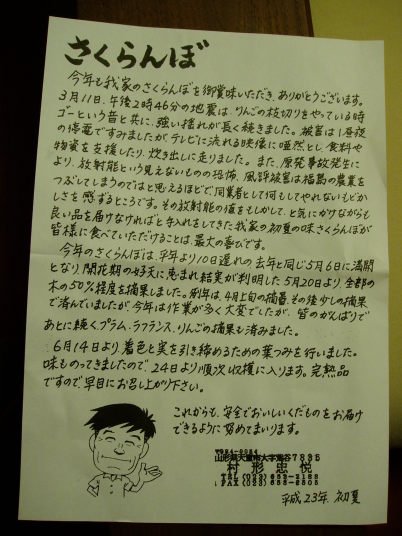 さくらんぼ
今年も我家のさくらんぼを御賞味いただき、ありがとうございます。
3月11日、午後2時46分の地震は、りんごの枝切りをやっている時
ゴーという音と共に、強い揺れが長く続きました。被害は1昼夜
の停電ですみましたが、テレビに流れる映像に唖然とし、食料や
物資を支援したり、炊き出しに走りました。また、原発事故発生に
より、放射能という見えないものの恐怖、風評被害は福島の農業を
つぶしてしまうのではと思えるほどで、同業者として何もしてやれないもどか
しさを感ずるところです。その放射能の値をもしかして、と気にかけながらも
良い品を届けなければと手入れをしてきた我家の初夏の味さくらんぼが
皆様に食べていただけることは、最大の喜びです。
今年のさくらんぼは、平年より10日遅れの去年と同じ5月6日に満開
となり、開花期の好天に恵まれ結実が判明した5月20日より、全部の
木の50%程度を摘果しました。例年は、4月上旬の摘蕾その後少しの摘果
で済んでいましたが、今年は作業が多く大変でしたが、皆のがんばりで
あとに続くプラム、ラフランス、りんごの摘果も済みました。
6月14日より、着色と実を引き締めるための葉つみを行いました。
味ものってきましたので、24日より順次収穫に入ります。完熟品
ですので、早目にお召し上がり下さい。
これからも、安全でおいしいくだものをお届け
できるように努めてまいります。
山形県天童市大字
村形忠悦
平成23年初夏